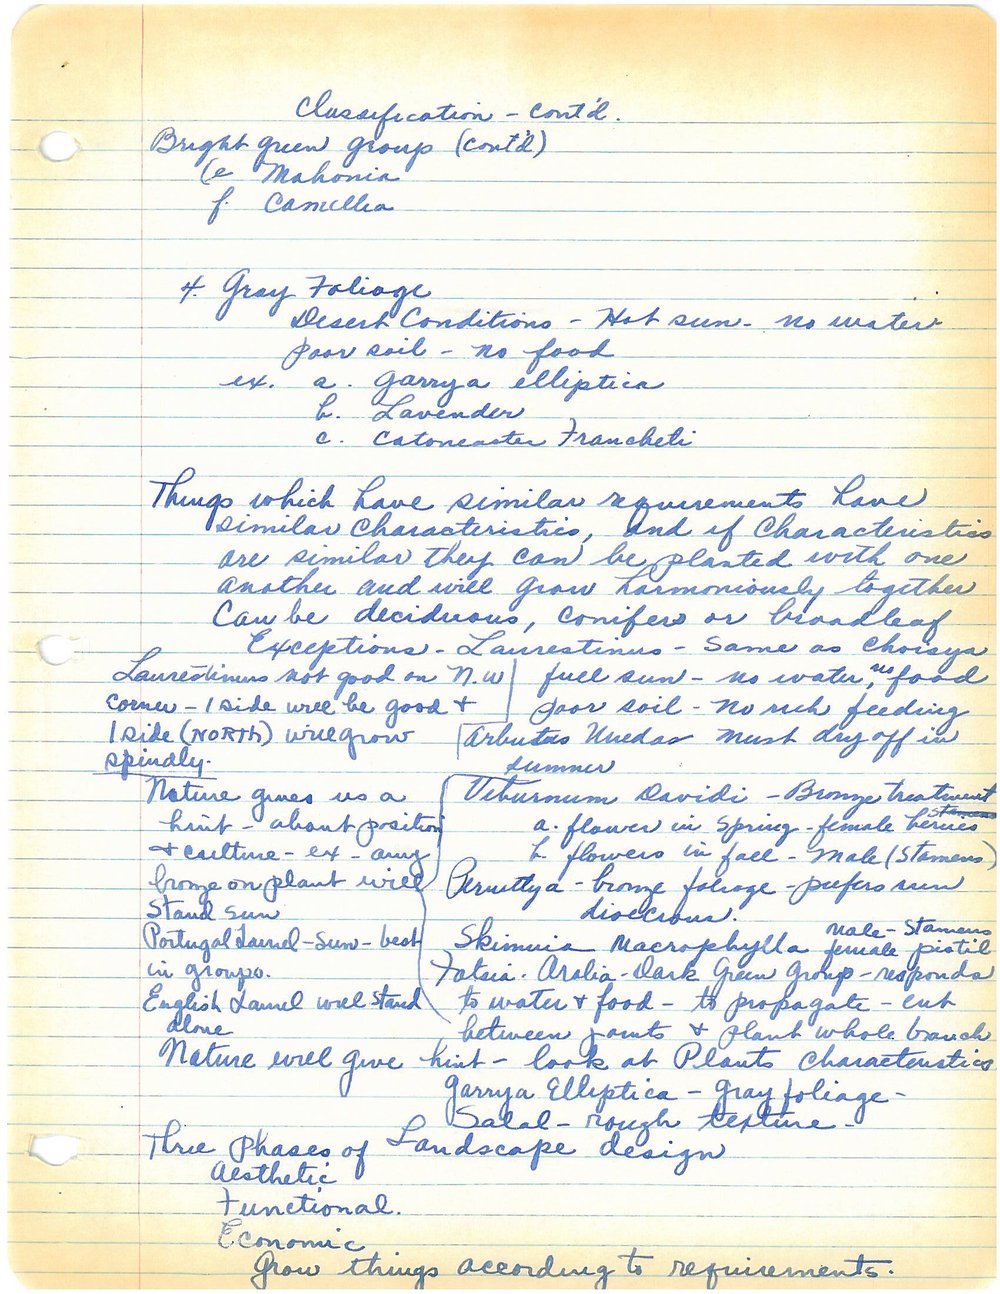 Classification - cont'd.
Bright green group (cont'd)
(e Mahonia
f. Camellia
4. Gray Foliage
Desert Conditions - Hot sun - no water
poor soil - no food
ex. a. Garrya elliptica
b. Lavender
c. Catoneaster Francheti
Things which have similar requirements have
similar characteristics, and if characteristics
are similar they can be planted with one
another and will grow harmoniously together
Can be deciduous, conifers or broadleaf
Exceptions - Laurestinus - Same as Choisya
full sun - no water, no food
poor soil - no rich feeding
Laurestinus not good on N.W
corner - 1 side will be good +
1 side (NORTH) will grow
spindly.
Arbutus Unedas must dry off in
summer
Nature gives us a
hint - about position
+ culture - ex - any
bronze on plant will
stand sun
Portugal Laurel - Sun - best
in groups.
English Laurel will stand
alone
Viburnum Davidi - Bronze treatment
a. flower in Spring - female berries
b. flowers in fall - Male (Stamens)
Pernettya - bronze foliage - prefers sun
dioecious.
Skimmia Macrophylla male - Stamens
female pistil
Fatsia - Aralia - Dark Green Group - responds
to water + food - to propagate - cut
between joints + plant whole branch
Nature will give hint - look at Plants Characteristics
Garrya Elliptica - Gray foliage -
Salal - rough texture -
Three Phases of Landscape design
Aesthetic
Functional.
Economic
Grow things according to requirements.